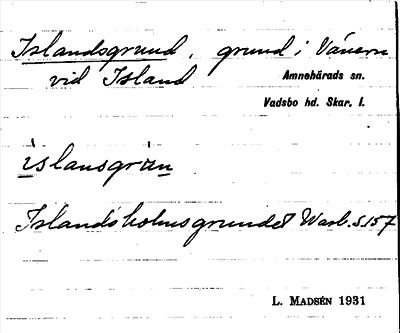 Islandsgrund, grund i Vänern
vid Island
Amnehärads sn.
Vadsbo hd. Skar. l.
ìslansgrun
Islandsholmsgrundet Warb. s. 157
L. MADSÉN 1931